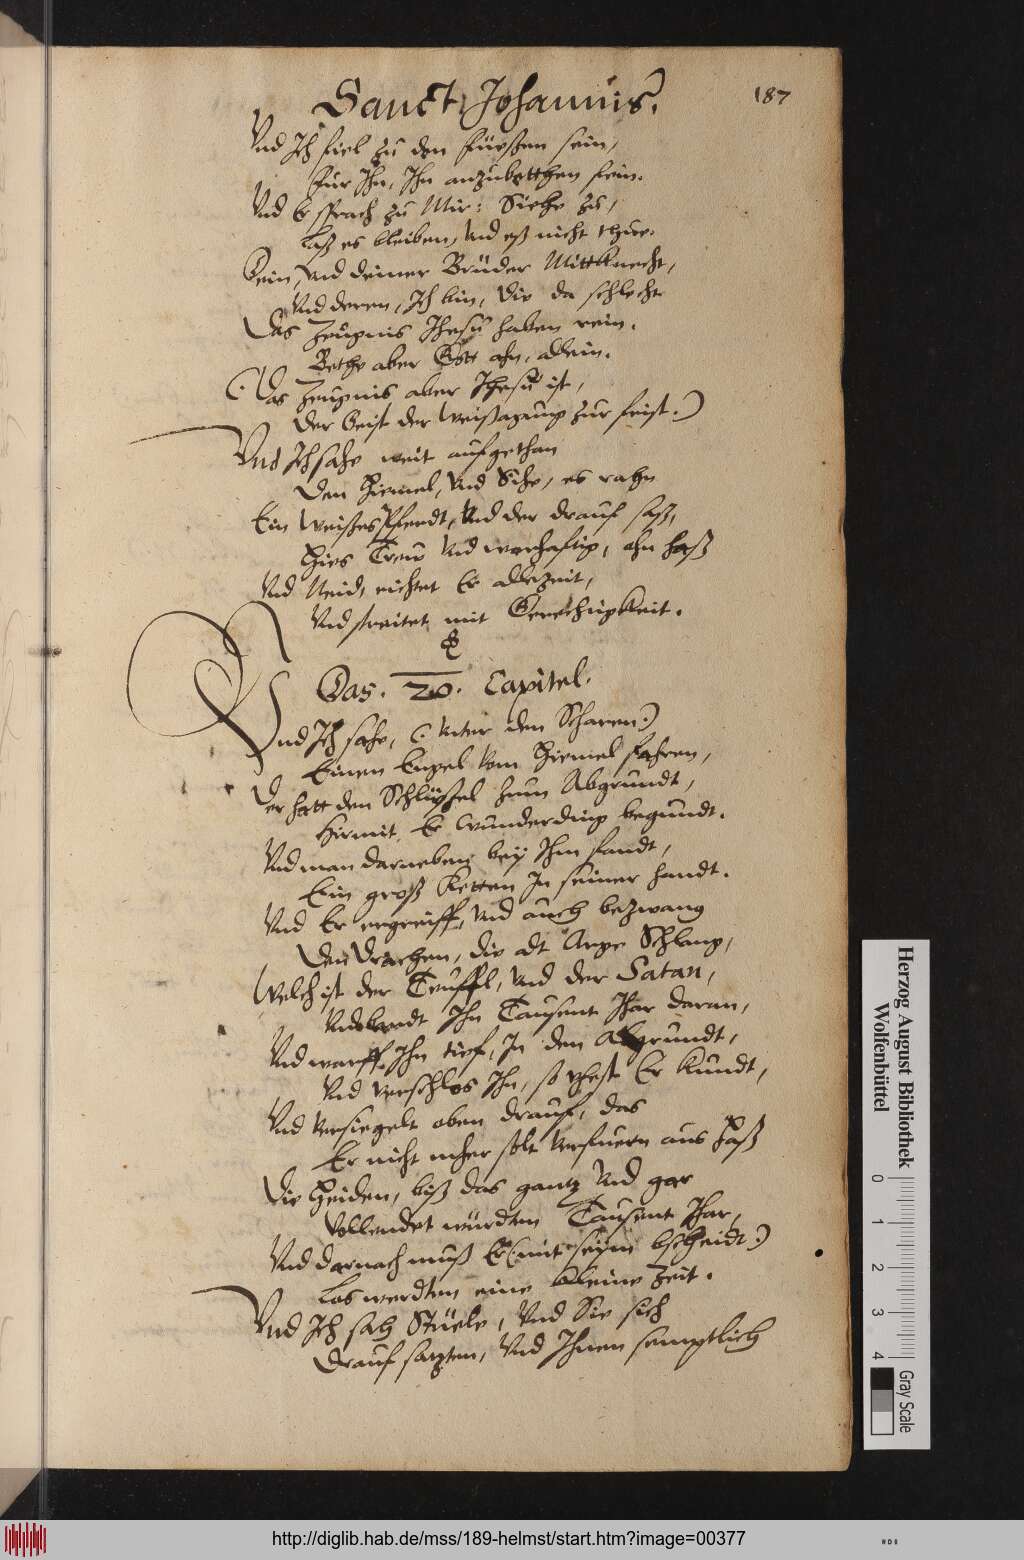 Sanct Johannis.
187
Vnd Ich fiel zu den füeßen sein,
Für Ihn, Ihn anzubetthen fein.
Vnd Er sprach zu Mir: Siehe zu,
laß es bleiben, Vnd eß nicht thue.
Dein, Vnd deiner Brüder Mittknecht,
Vnd deren, Ich bin, die da schlecht
Das Zeugnis Jhesu haben rein.
Bethe aber Gott ahn, allein.
(. Das Zeugnis aber Jhesu ist,
Der Geist der Weißagung zur frist.)
Vnd Ich sahe weit aufgethan
Den Himel, Vnd Sihe, es rahn
Ein Weißes Pferdt, Vnd der drauf saß,
Hies Trew Vnd warhaftig, ohn haß
Vnd Neid, richtet Er allezeit,
Vnd streitet mit Gerechtigkeit.
Das. 20. Capitel.
Vnd Ich sahe, (. Vnter den Scharen.)
Einen Engel Vom Himel fahren,
Der hatt den Schlüßel zum Abgrundt,
Hirmit Er Wunderding begundt.
Vnd man darneben bey Ihm fandt,
Ein groß Ketten In seiner handt.
Vnd Er ergreiff, Vnd auch bezwang
Den Drachen, die alt Arge Schlang,
Welch ist der Teuffl, Vnd der Satan,
Vnd bandt Ihn Tausent Ihar daran,
Vnd warff Ihn tief, In den Abgrundt,
Vnd verschlos Ihn, so vhest Er kundt,
Vnd Versiegelt oben drauf, das
Er nicht mher solt Verfuern aus Haß
Die Heiden, biß das gantz Vnd gar
Vollendet würdten Tausent Ihar,
Vnd darnach muß Er (. mit seym bscheidt.)
Los werdten eine kleine Zeit.
Vnd Ich sah Stüele, Vnd Sie sich
Drauf satzten, Vnd Ihnen semptlich
Herzog August Bibliothek
Wolfenbüttel
0 1 2 3 4
Gray Scale
http://diglib.hab.de/mss/189-helmst/start.htm?image=00377